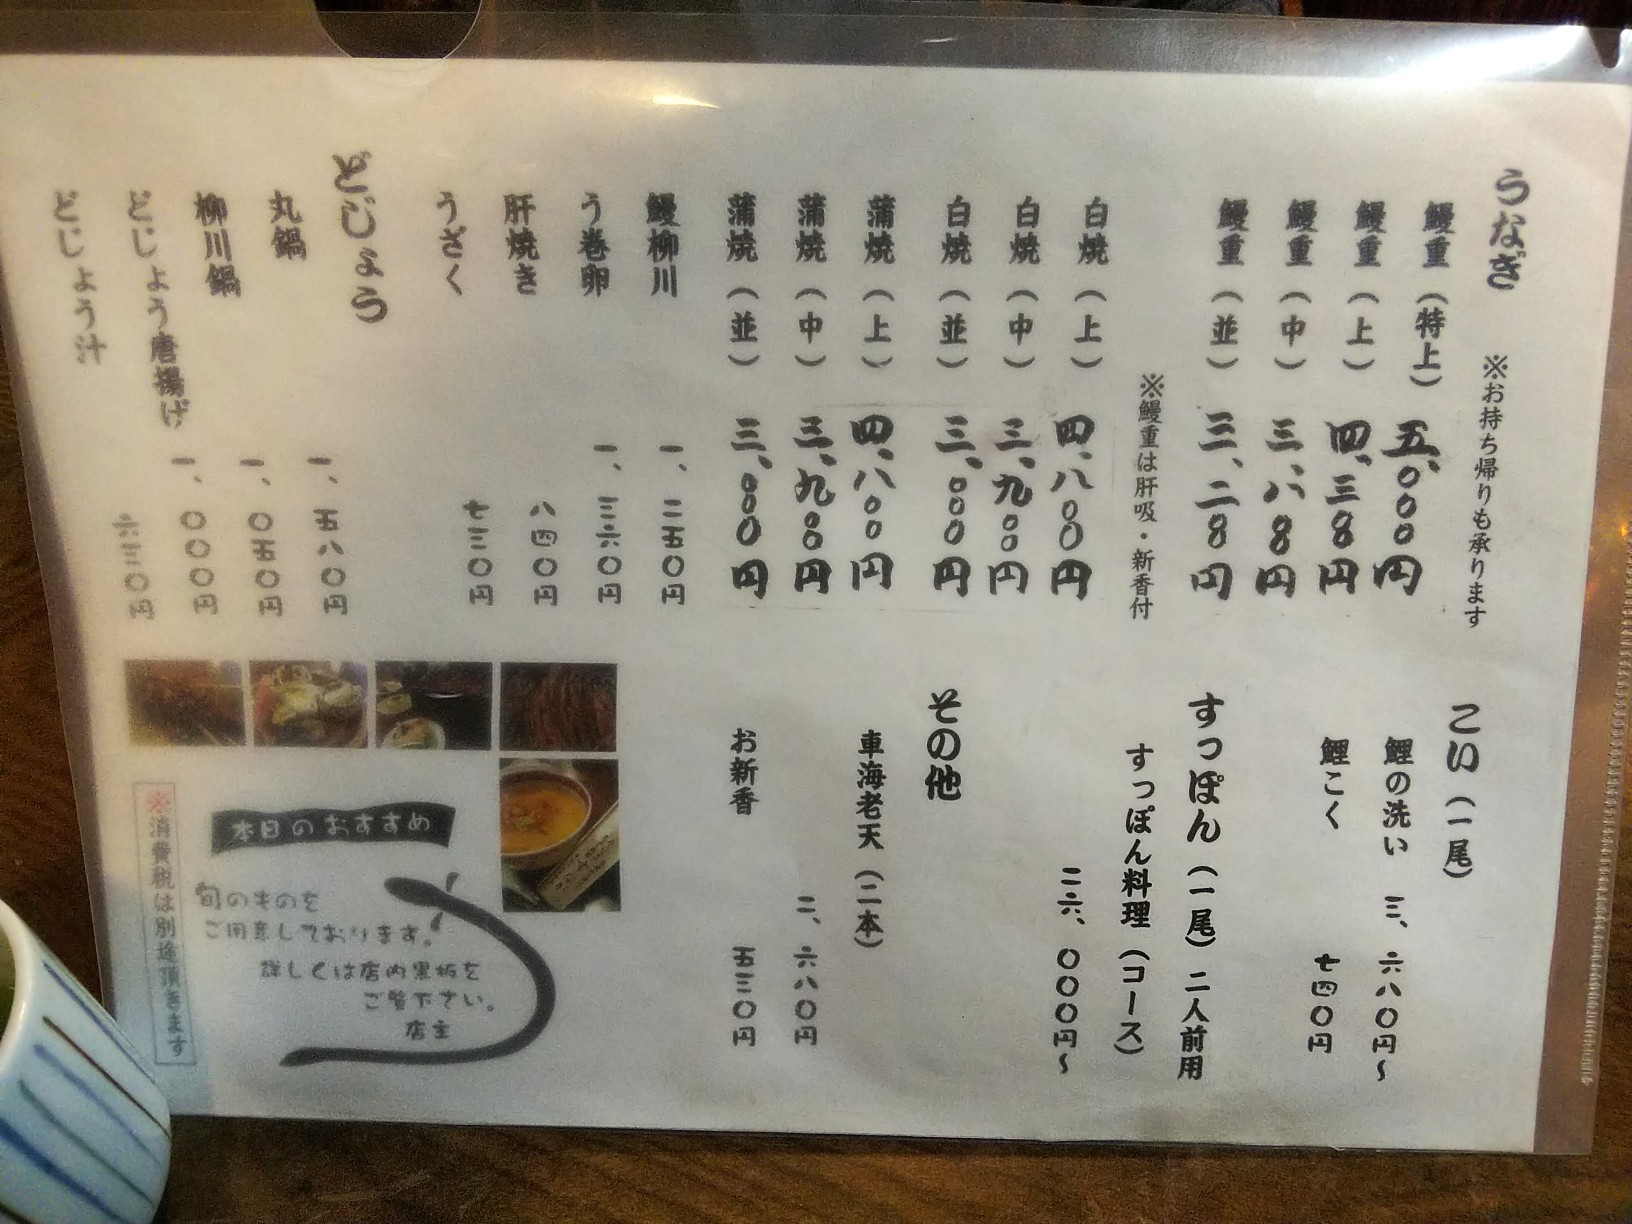 うなぎ ※お持ち帰りも承ります
鰻重（特上） 五、〇〇〇円
鰻重（上） 四、三〇〇円
鰻重（中） 三、八〇〇円
鰻重（並） 三、二〇〇円
※鰻重は肝吸・新香付
白焼（上） 四、八〇〇円
白焼（中） 三、九〇〇円
白焼（並） 三、〇〇〇円
蒲焼（上） 四、八〇〇円
蒲焼（中） 三、九〇〇円
蒲焼（並） 三、〇〇〇円
鰻柳川 一、二五〇円
う巻卵 一、三六〇円
肝焼き 八四〇円
うざく 七三〇円
どじょう
丸鍋 一、五八〇円
柳川鍋 一、〇五〇円
どじょう唐揚げ 一、〇〇〇円
どじょう汁 六三〇円
こい（一尾）
鯉の洗い 三、六八〇円～
鯉こく 七四〇円
すっぽん（一尾）二人前用
すっぽん料理（コース）
二六、〇〇〇円～
その他
車海老天（二本）
二、六八〇円
お新香 五三〇円
本日のおすすめ
旬のものを
ご用意しております。
詳しくは店内黒板を
ご覧下さい。
店主
※消費税は別途頂きます